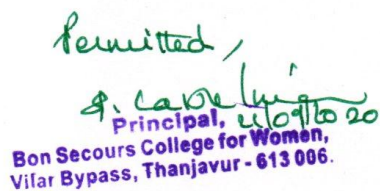 Permitted,
Principal,
Bon Secours College for Women,
Vilar Bypass, Thanjavur - 613 006.